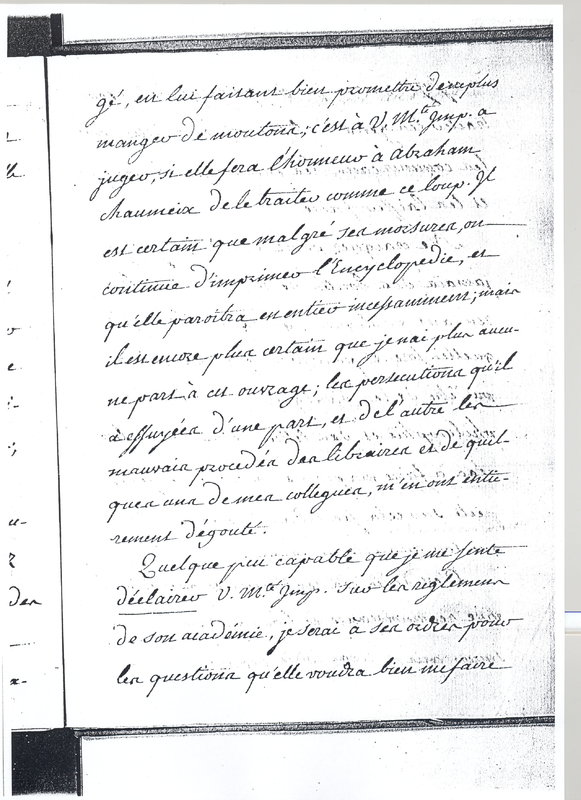 gé, en lui faisant bien promettre de ne plus
manger de moutons; c'est à V. M.té Imp. a
juger, si elle fera l'honneur à Abraham
Chaumeix de le traiter comme ce loup. Il
est certain que malgré ses morsures, on
continue d'imprimer l'Encyclopedie, et
qu'elle paroitra en entier incessamment; mais
il est encore plus certain que je nai plus aucu-
ne part à cet ouvrage; les persecutions qu'il
à essuyées d'une part, et de l'autre les
mauvais procedés des libraires et de quel-
ques uns de mes collegues, m'en ont entie-
rement dégouté.
Quelque peu capable que je me sente
d'éclairer V. M.té Imp. sur les réglemens
de son académie, je serai a ses ordres pour
les questions qu'elle voudra bien me faire
u-
des